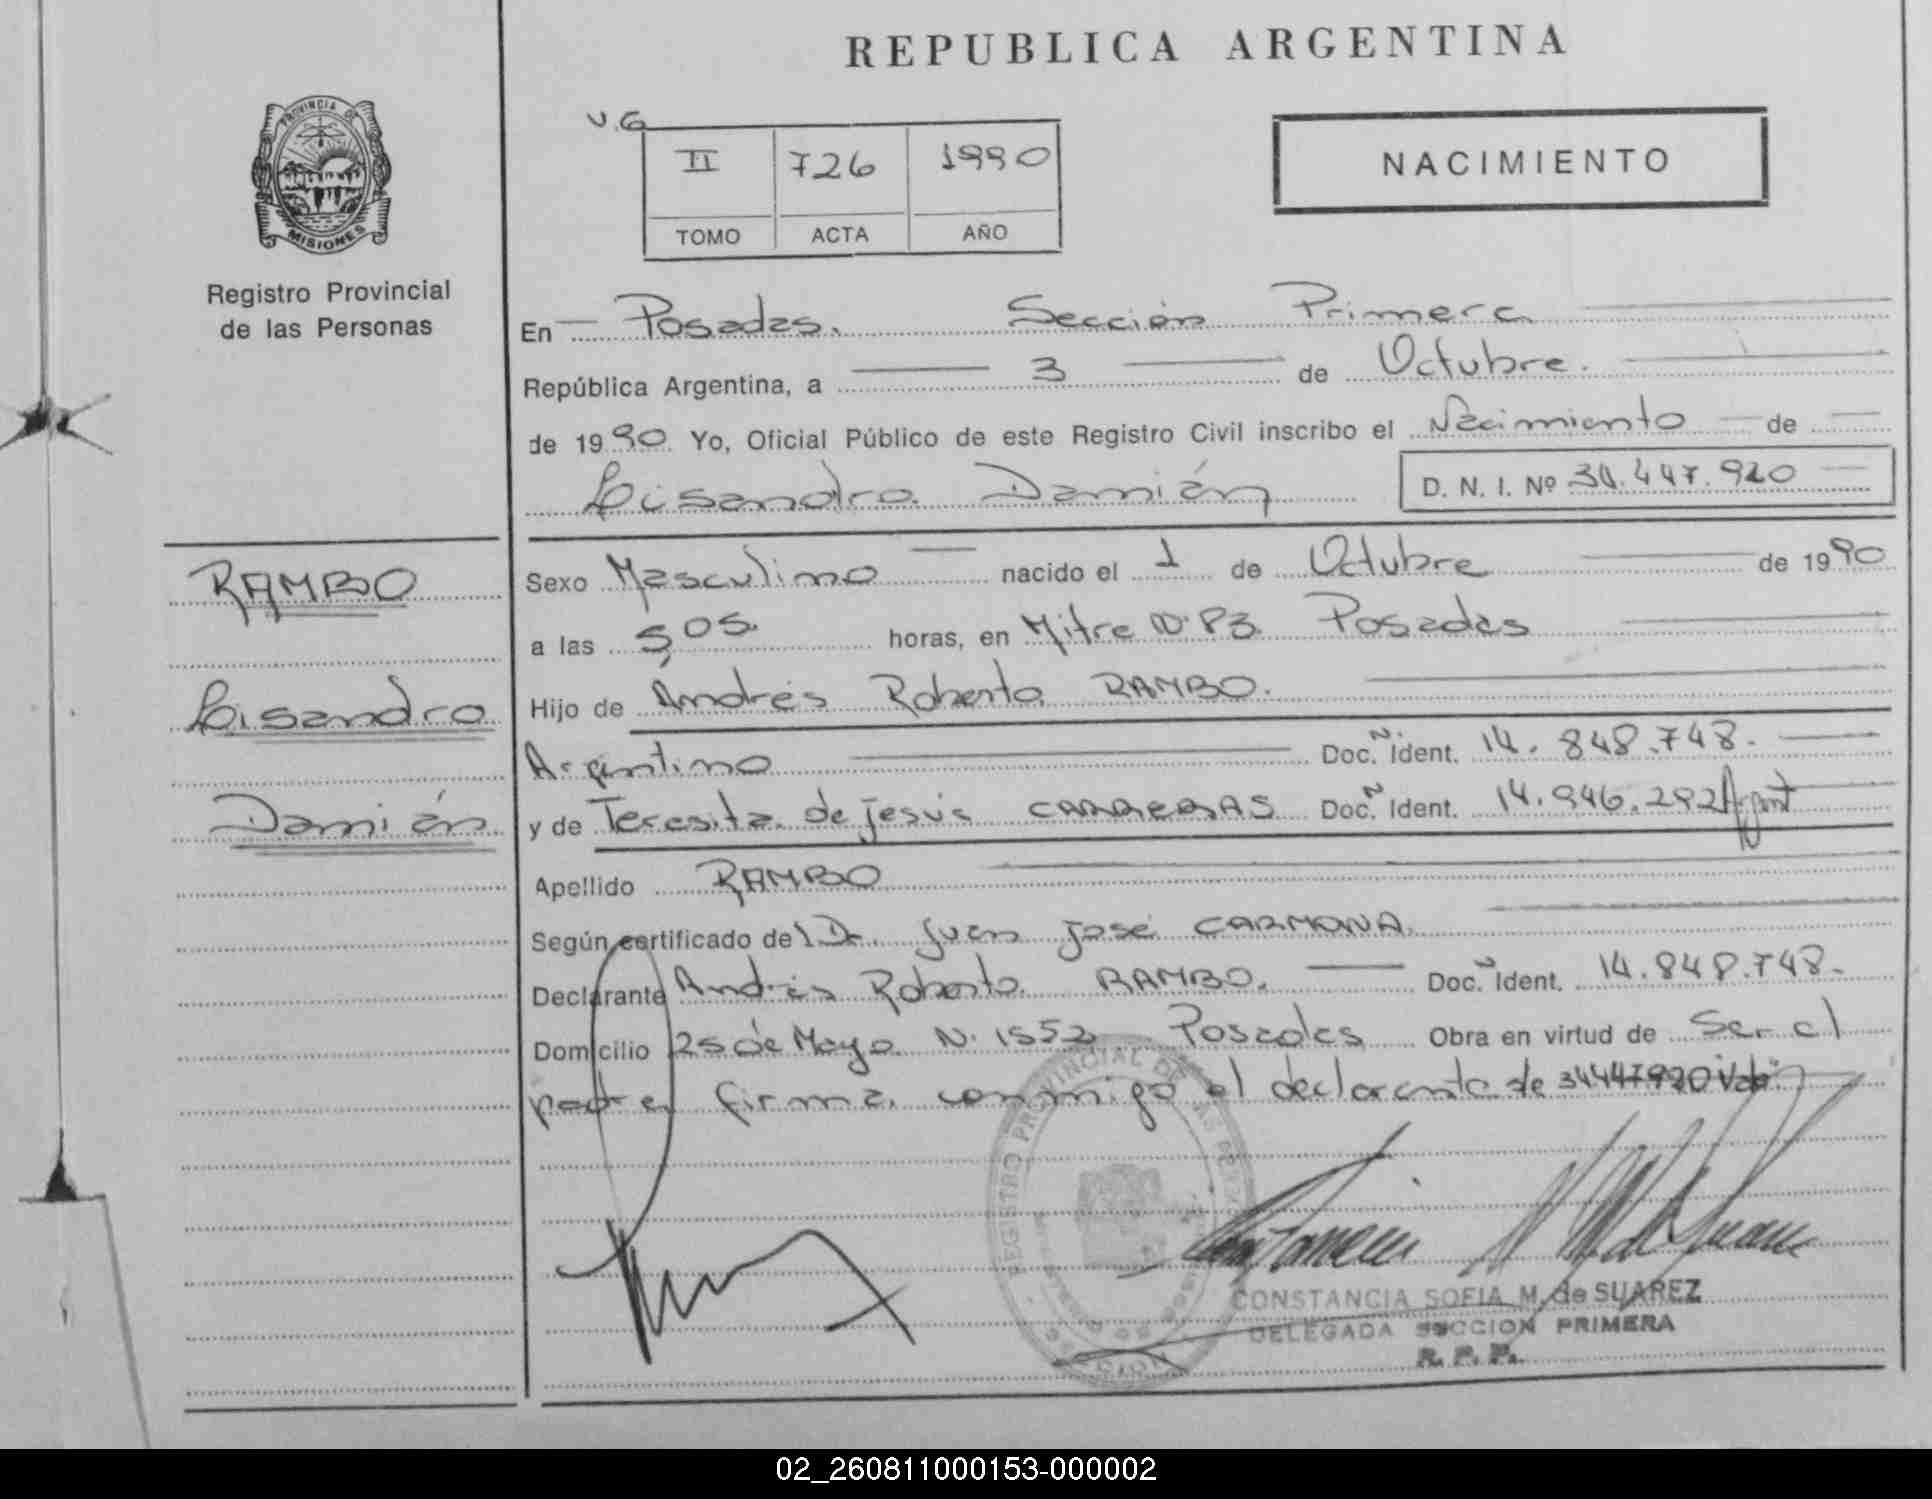 REPUBLICA ARGENTINA
PROVINCIA DE
MISIONES
Registro Provincial
de las Personas
V.G
II 726 1990
TOMO ACTA AÑO
NACIMIENTO
En Posadas. Sección Primera
República Argentina, a 3 de Octubre.
de 1990. Yo, Oficial Público de este Registro Civil inscribo el Nacimiento de
Lisandro Damián D. N. I. Nº 34.447.920
RAMBO
Lisandro
Damián
Sexo Masculino nacido el 1 de Octubre de 1990
a las 5,05. horas, en Mitre Nº 83. Posadas
Hijo de Andrés Roberto RAMBO.
Argentino Doc. Ident. 14.848.748.
y de Teresita de Jesús CARRERAS Doc. Ident. 14.946.292 Argent
Apellido RAMBO
Según certificado del Dr. Juan José CARMONA.
Declarante Andrés Roberto RAMBO. Doc. Ident. 14.848.748.
Domicilio 25 de Mayo N. 1552 Posadas Obra en virtud de Ser el
padre, firma conmigo el declarante de 34447920 Vale
REGISTRO PROVINCIAL DE LAS
CONSTANCIA SOFIA M. de SUAREZ
DELEGADA SECCION PRIMERA
R. P. P.
02_260811000153-000002